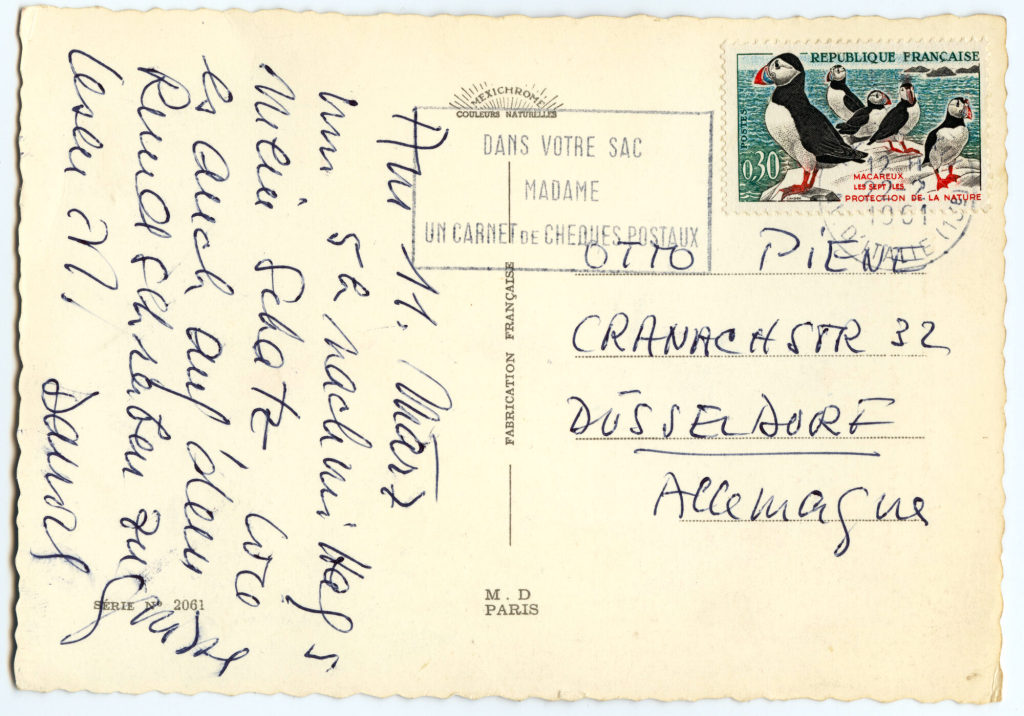 MEXICHROME
COULEURS NATURELLES
DANS VOTRE SAC
MADAME
UN CARNET DE CHEQUES POSTAUX
REPUBLIQUE FRANÇAISE
POSTES
0,30
MACAREUX
LES SEPT ILES
PROTECTION DE LA NATURE
1961
D'ITALIE
Am 11. März
um 5h nachmittags
Mein Schatz wo
es auch auf dem
Rund
lesen
FABRICATION FRANÇAISE
OTTO PIENE
CRANACHSTR 32
DÜSSELDORF
Allemagne
SÉRIE Nº 2061
M. D
PARIS